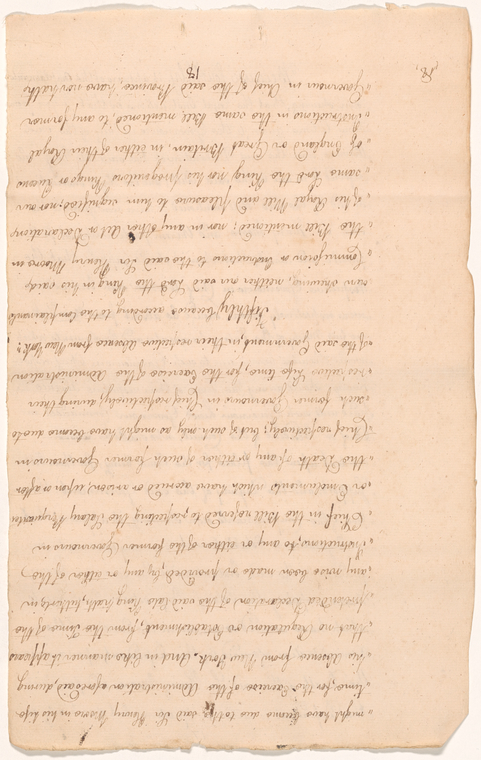 "might have become due to the said Sir Henry Moore in his life
"time, for the Exercise of the Administration aforesaid, during
"his absence from New York. And in like manner it appears
"that no Regulation or Establishment, from the Time of the
"pretended Declaration of the said late King hath, hitherto, in
"any wise been made or provided, by any or either of the
"Instructions, to any or either of the former Governours in
"Chief in the Bill referred to, respecting the Salary Perquisites
"or Emoluments which have accrued or arisen, upon or after
"the Death of any or either of such former Governours in
"Chief respectively; but of such only as might have become due to
"such former Governours in Chief respectively, during their
"respective Life time, for the Exercise of the Administration
"of the said Government, in their respective absence from New York."
"Fifthly because according to the Complainants
"own shewing, neither our said Lord the King in his said
"Commission or Instructions to the said Sir Henry Moore in
"the Bill mentioned; nor in any other Act or Declaration
"of his Royal Will and pleasure to him signified; nor our
"same Lord the King, nor his progenitors Kings or Queens
"of England or Great Britain, in either of their Royal
"Instructions in the same Bill mentioned, to any former
"Governour in Chief of the said Province, have or hath
18